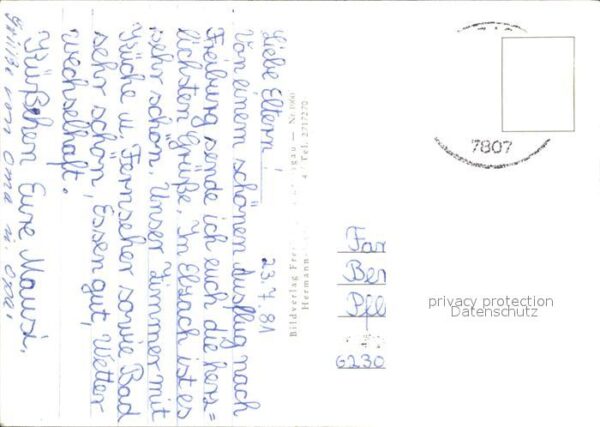 23.7.81
Liebe Eltern!
Von einem schönen Ausflug nach
Freiburg sende ich euch die herz=
lichsten Grüße. In Elzach ist es
sehr schön. Unser Zimmer mit
Küche u. Fernseher sowie Bad
sehr schön, Essen gut, Wetter
wechselhaft.
Küßchen Eure Mausi.
Grüße von Oma u. Opa.
Bildverlag Frei
gau — Nr. 1060
Hermann-
4 Tel. 2717270
7807
Fam
Ber
Pfl
6230
privacy protection
Datenschutz